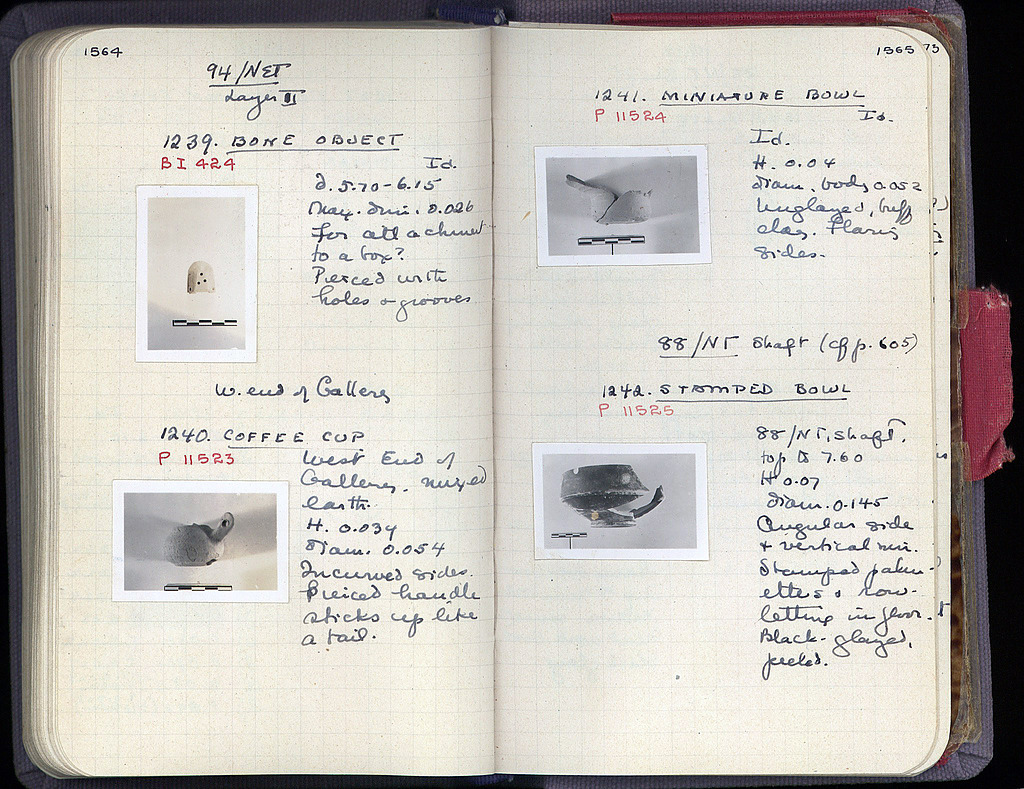 1564
94/NET
Layer II
1239. BONE OBJECT
BI 424
Id.
d. 5.70-6.15
Max. dim. 0.026
For attachment
to a box?
Pierced with
holes & grooves
W. end of Gallery
1240. COFFEE CUP
P 11523
West End of
Gallery. mixed
earth.
H. 0.034
Diam. 0.054
Incurved sides.
Pierced handle
sticks up like
a tail.
1565
73
1241. MINIATURE BOWL
P 11524
Id.
Id.
H. 0.04
diam. body 0.052
Unglazed, buff
clay. Flaring
sides.
88/NT shaft (cf p. 605)
1242. STAMPED BOWL
P 11525
88/NT, shaft.
top to 7.60
H 0.07
diam. 0.145
Angular side
+ vertical rim.
Stamped palm-
ettes & rou-
letting in floor.
Black-glazed,
peeled.